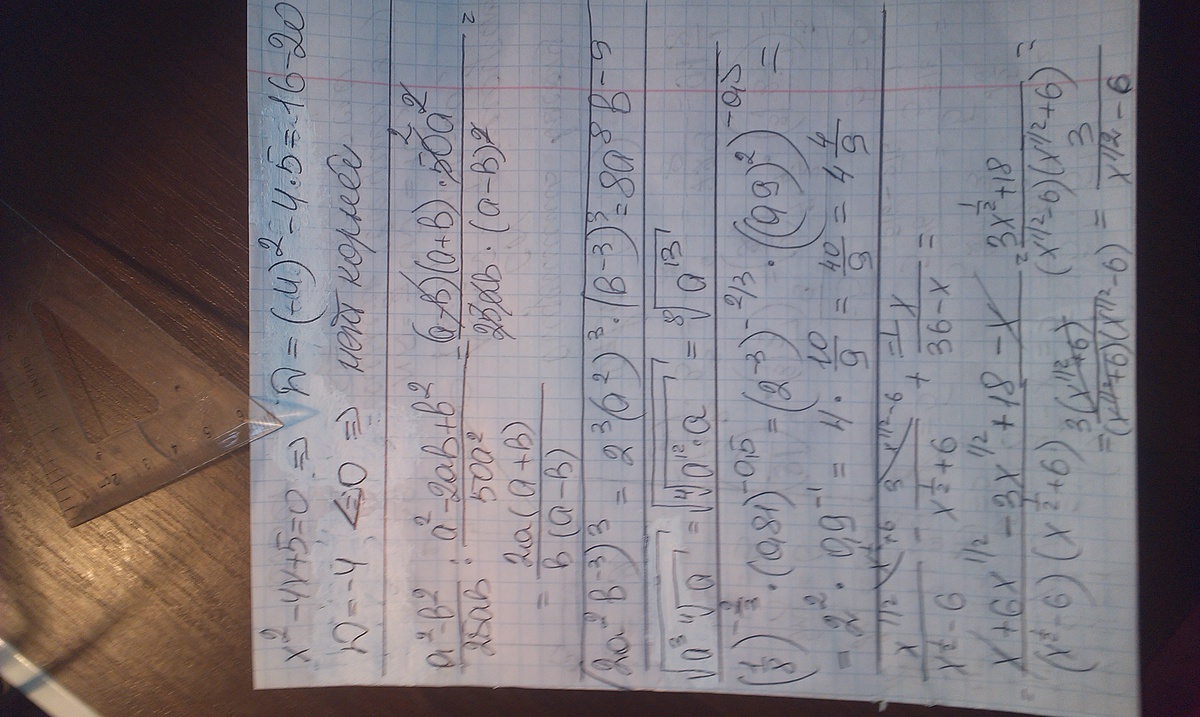 x² - 4x + 5 = 0 ⇒ D = (-4)² - 4·5 = 16 - 20
D = -4 < 0 ⇒ нет корней
(a² - b²)/(25ab) : (a² - 2ab + b²)/(50a²) = ((a-b)(a+b)·50a²)/(25ab·(a-b)²) =
= (2a(a+b))/(b(a-b))
(2a²b⁻³)³ = 2³(a²)³·(b⁻³)³ = 8a⁸b⁻⁹
√(a³ ⁴√a) = √(⁴√(a¹²·a)) = ⁸√(a¹³)
(1/8)^(-2/3) · (0,81)^(-0,5) = (2⁻³)^(-2/3) · ((0,9)²)^(-0,5) =
= 2² · 0,9⁻¹ = 4 · 10/9 = 40/9 = 4 4/9
x^(1/2)/(x^(1/2) - 6) - 3/(x^(1/2) + 6) + x/(36 - x) =
= (x + 6x^(1/2) - 3x^(1/2) + 18 - x)/((x^(1/2) - 6)(x^(1/2) + 6)) = (3x^(1/2) + 18)/((x^(1/2) - 6)(x^(1/2) + 6)) =
= 3(x^(1/2) + 6)/((x^(1/2) + 6)(x^(1/2) - 6)) = 3/(x^(1/2) - 6)